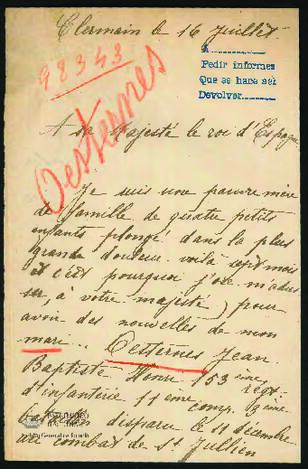 Clermain le 16 Juillet
98343
A
Pedir informes
Que se hara sei
Devolver
Oesternes
A sa Majesté le roi d'Espagne
Je suis une pauvre mère
de famille de quatre petits
enfants plongé dans la plus
grande douleur voilà sept mois
et c'est pourquoi j'ose m'adres
ser, à votre majesté) pour
avoir des nouvelles de mon
mari. Oesternes Jean
Baptiste Henri 153 ème regt.
d'infanterie 11ème comp. 3ème
disparu le 11 décembre
au combat de St Jullien